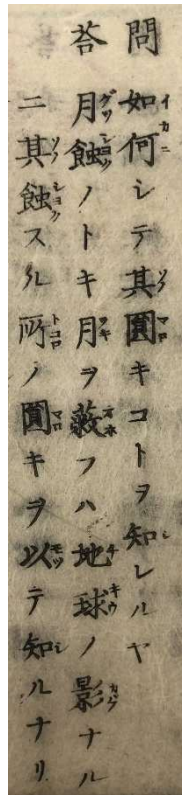 問 如何シテ其圓キコトヲ知レルヤ
荅 月蝕ノトキ月ヲ蔽フハ地球ノ影ナル
ニ其蝕スル所ノ圓キヲ以テ知ルナリ